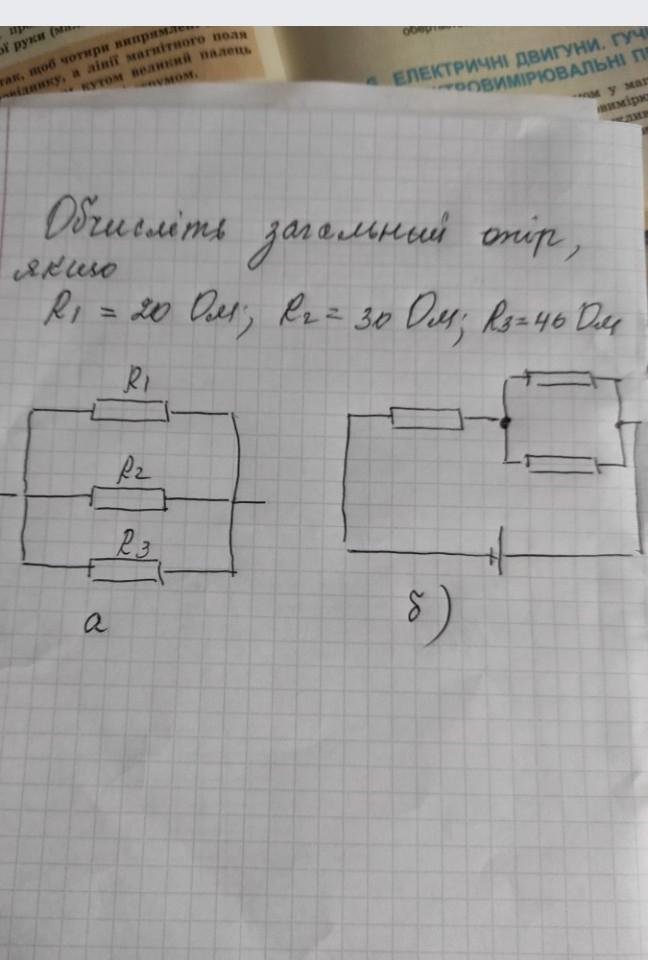 ої руки (ма
так, щоб чотири випрямле
овіднику, а лінії магнітного поля
м кутом великий палець
трумом.
оберта
6. ЕЛЕКТРИЧНІ ДВИГУНИ. ГУЧ
КТРОВИМІРЮВАЛЬНІ П
ом у маг
Обчисліть загальний опір,
якщо
R1 = 20 Ом; R2 = 30 Ом; R3 = 40 Ом
R1
R2
R3
а
б)